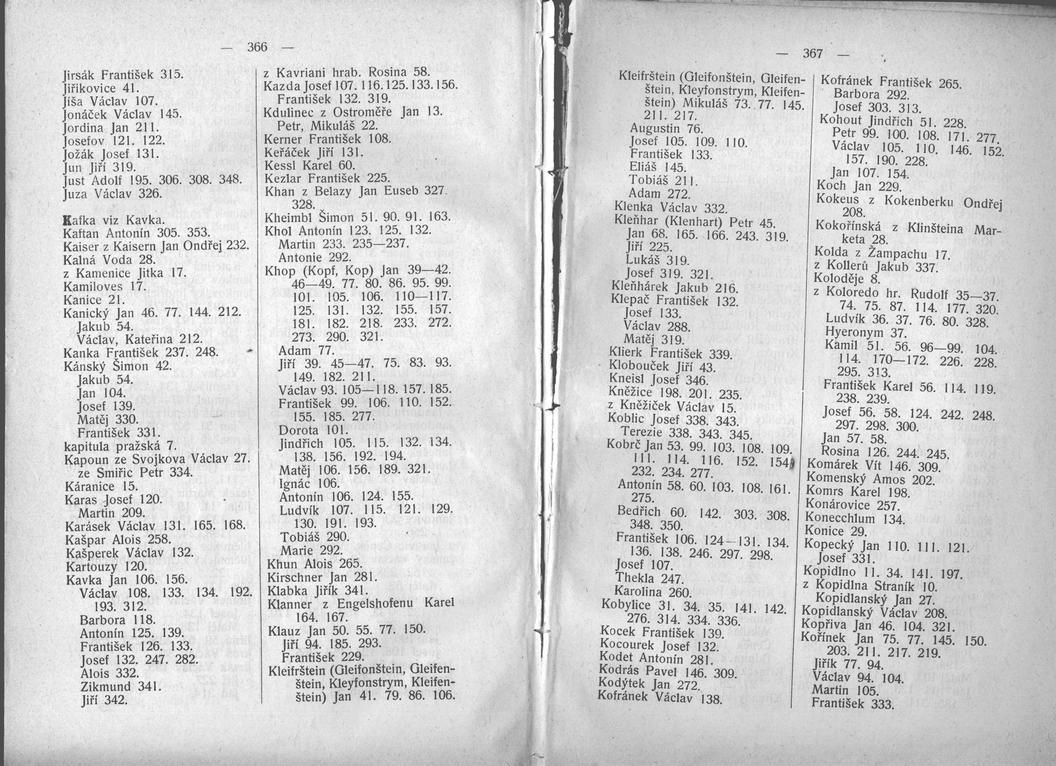 — 366 —
Jirsák František 315.
Jiřikovice 41.
Jíša Václav 107.
Jonáček Václav 145.
Jordina Jan 211.
Josefov 121. 122.
Jožák Josef 131.
Jun Jiří 319.
Just Adolf 195. 306. 308. 348.
Juza Václav 326.
Kafka viz Kavka.
Kaftan Antonín 305. 353.
Kaiser z Kaisern Jan Ondřej 232.
Kalná Voda 28.
z Kamenice Jitka 17.
Kamiloves 17.
Kanice 21.
Kanický Jan 46. 77. 144. 212.
Jakub 54.
Václav, Kateřina 212.
Kanka František 237. 248.
Kánský Šimon 42.
Jakub 54.
Jan 104.
Josef 139.
Matěj 330.
František 331.
kapitula pražská 7.
Kapoun ze Svojkova Václav 27.
ze Smiřic Petr 334.
Káranice 15.
Karas Josef 120.
Martin 209.
Karásek Václav 131. 165. 168.
Kašpar Alois 258.
Kašperek Václav 132.
Kartouzy 120.
Kavka Jan 106. 156.
Václav 108. 133. 134. 192.
193. 312.
Barbora 118.
Antonín 125. 139.
František 126. 133.
Josef 132. 247. 282.
Alois 332.
Zikmund 341.
Jiří 342.
z Kavriani hrab. Rosina 58.
Kazda Josef 107. 116. 125. 133. 156.
František 132. 319.
Kdulinec z Ostroměře Jan 13.
Petr, Mikuláš 22.
Kerner František 108.
Keřáček Jiří 131.
Kessl Karel 60.
Kezlar František 225.
Khan z Belazy Jan Euseb 327.
328.
Kheimbl Šimon 51. 90. 91. 163.
Khol Antonín 123. 125. 132.
Martin 233. 235—237.
Antonie 292.
Khop (Kopf, Kop) Jan 39—42.
46—49. 77. 80. 86. 95. 99.
101. 105. 106. 110—117.
125. 131. 132. 155. 157.
181. 182. 218. 233. 272.
273. 290. 321.
Adam 77.
Jiří 39. 45—47. 75. 83. 93.
149. 182. 211.
Václav 93. 105—118. 157. 185.
František 99. 106. 110. 152.
155. 185. 277.
Dorota 101.
Jindřich 105. 115. 132. 134.
138. 156. 192. 194.
Matěj 106. 156. 189. 321.
Ignác 106.
Antonín 106. 124. 155.
Ludvík 107. 115. 121. 129.
130. 191. 193.
Tobiáš 290.
Marie 292.
Khun Alois 265.
Kirschner Jan 281.
Klabka Jiřík 341.
Klanner z Engelshofenu Karel
164. 167.
Klauz Jan 50. 55. 77. 150.
Jiří 94. 185. 293.
František 229.
Kleifrštein (Gleifonštein, Gleifen-
štein, Kleyfonstrym, Kleifen-
štein) Jan 41. 79. 86. 106.
— 367 —
Kleifrštein (Gleifonštein, Gleifen-
štein, Kleyfonstrym, Kleifen-
štein) Mikuláš 73. 77. 145.
211. 217.
Augustin 76.
Josef 105. 109. 110.
František 133.
Eliáš 145.
Tobiáš 211.
Adam 272.
Klenka Václav 332.
Kleňhar (Klenhart) Petr 45.
Jan 68. 165. 166. 243. 319.
Jiří 225.
Lukáš 319.
Josef 319. 321.
Kleňhárek Jakub 216.
Klepač František 132.
Josef 133.
Václav 288.
Matěj 319.
Klierk František 339.
Klobouček Jiří 43.
Kneisl Josef 346.
Kněžice 198. 201. 235.
z Kněžiček Václav 15.
Koblic Josef 338. 343.
Terezie 338. 343. 345.
Kobrč Jan 53. 99. 103. 108. 109.
111. 114. 116. 152. 154.
232. 234. 277.
Antonín 58. 60. 103. 108. 161.
275.
Bedřich 60. 142. 303. 308.
348. 350.
František 106. 124—131. 134.
136. 138. 246. 297. 298.
Josef 107.
Thekla 247.
Karolina 260.
Kobylice 31. 34. 35. 141. 142.
276. 314. 334. 336.
Kocek František 139.
Kocourek Josef 132.
Kodet Antonín 281.
Kodrás Pavel 146. 309.
Kodýtek Jan 272.
Kofránek Václav 138.
Kofránek František 265.
Barbora 292.
Josef 303. 313.
Kohout Jindřich 51. 228.
Petr 99. 100. 108. 171. 277.
Václav 105. 110. 146. 152.
157. 190. 228.
Jan 107. 154.
Koch Jan 229.
Kokeus z Kokenberku Ondřej
208.
Kokořínská z Klinšteina Mar-
keta 28.
Kolda z Žampachu 17.
z Kollerů Jakub 337.
Koloděje 8.
z Koloredo hr. Rudolf 35—37.
74. 75. 87. 114. 177. 320.
Ludvík 36. 37. 76. 80. 328.
Hyeronym 37.
Kamil 51. 56. 96—99. 104.
114. 170—172. 226. 228.
295. 313.
František Karel 56. 114. 119.
238. 239.
Josef 56. 58. 124. 242. 248.
297. 298. 300.
Jan 57. 58.
Rosina 126. 244. 245.
Komárek Vít 146. 309.
Komenský Amos 202.
Komrs Karel 198.
Konárovice 257.
Konecchlum 134.
Konice 29.
Kopecký Jan 110. 111. 121.
Josef 331.
Kopidlno 11. 34. 141. 197.
z Kopidlna Straník 10.
Kopidlanský Jan 27.
Kopidlanský Václav 208.
Kopřiva Jan 46. 104. 321.
Kořínek Jan 75. 77. 145. 150.
203. 211. 217. 219.
Jiřík 77. 94.
Václav 94. 104.
Martin 105.
František 333.